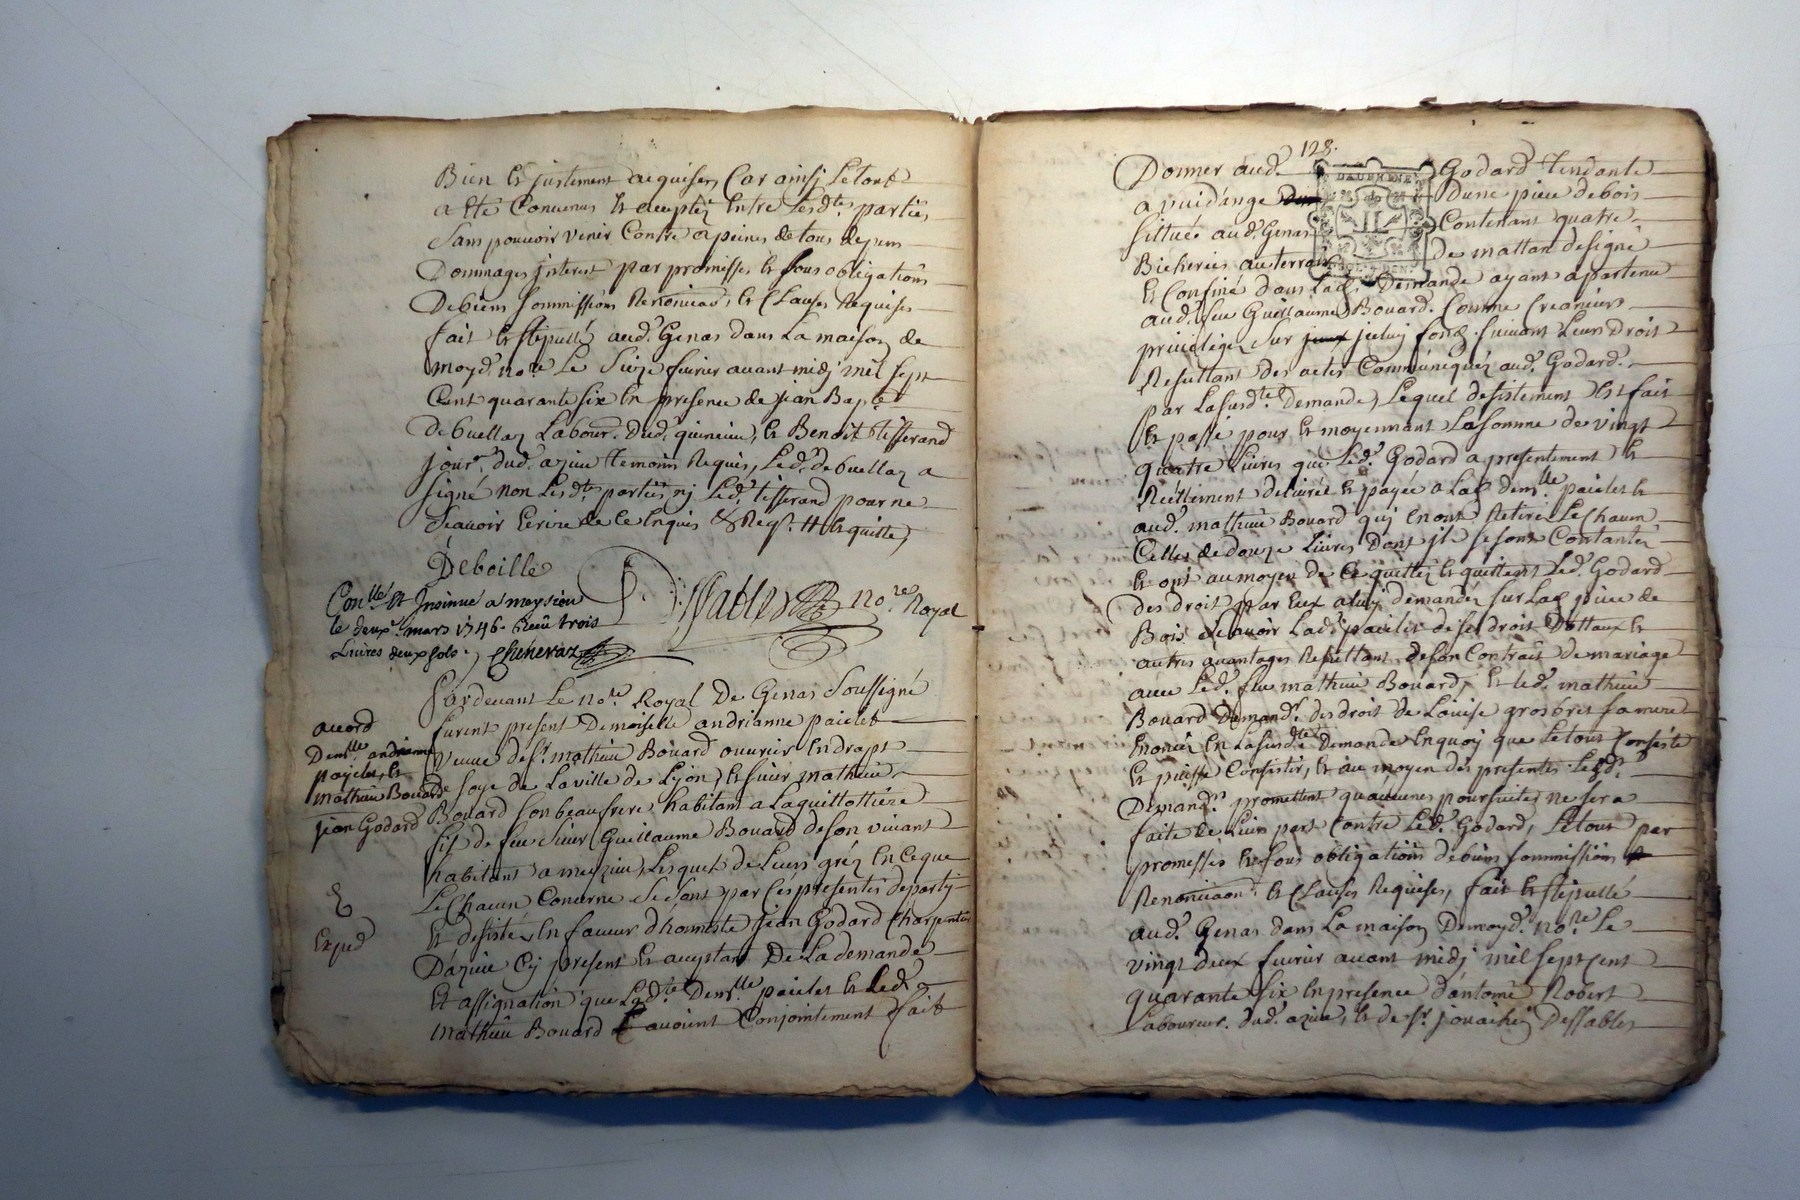 Bien et justement acquises Car ainsy le tout
a êté Convenus et acceptéz Entre Lesd.tes parties
Sans pouvoir venir Contre a peines de tous depens
Dommages Jnterest par promisses et sous obligations
De biens Sommissions Renonciaõ, et Clauses Requises
fait et stipullé aud.t Genas dans La maison de
moyd.t no.re Le Seize fevrier avant midj mil sept
Cent quarante six En presence de jean Bap.te
Debuellaz Labour. Dud. et Benoit tisserand
jour.r dud. azieu temoins Requis, Led.t debuellaz a
signé non Lesd.tes parties nj Led.t tisserand pour ne
Sçavoir Ecrire de Ce Enquis et Req.s
Deboille
no.re Royal
Con.llé et Jnsinué a meysieu
le deux.e mars 1746. Reçû trois
Livres deux sols.
Pardevant Le no.re Royal De Genas Soussigné
furent present Demoiselle andrianne paielet
Veuve de s.r mathieu Bouard ouvrier En draps
de soye de La ville de Lyon, et sieur mathieu
Bouard son beaufrere habitant a Laguillottiere
fils de feu sieur Guillaume Bouard de son vivant
habitant a meyzieu, Lesquels de Leurs gréz En Ce que
Le Chacun Concerne Se sont par Ces presentes departy
et desistés En faveur d'honneste Jean Godard Charpentier
D'azieu Cy present et aceptant De La demande
Et assignation que Lad.te Dem.lle paielet et Led.
mathieu Bouard avoient Conjointement fait
acord
Dem.lle andrianne
payelet, et
mathieu Bouard
jean Godard
Exped
128.
DAUPHINE
Donner aud. Godard tendante
a vuid'ange D'une piece de bois
sittuée aud. Genas Contenant quatre
Bicherées au terroir de mattan designé
et Confiné dans Lad. Demande ayant apartenu
aud. feu Guillaume Bouard. Comme Creanciers
privilegiez sur jceluy fond suivant Leurs Droit
Resultant des actes Communiquéz aud. Godard.
par Lasusd.te Demande, Lequel desistement Est fait
Et passé pour et moyennant La somme de vingt
quatre Livres que Led. Godard a presentement et
Réellement delivrée et payée a Lad. dem.lle paielet et
aud. mathieu Bouard quj En ont Retiré Le Chacun
Celles de douze Livres Dont jls se sont Contantés
et ont au moyen de Ce quitté et quittent Led. Godard
des droit par Eux a luy demandéz sur Lad. piece de
Bois Sçavoir Lad.te paielet de ses droit Dottaux et
autres avantages Resultant de son Contrait de mariage
avec Led. feu mathieu Bouard, et led. mathieu
Bouard Demand.r des droit de Loüise grosbret sa mere
Enoncée En Lasusd.te Demande En quoy que Le tout Consiste
et puisse Consister, et au moyen des presentes Lesd.ts
Demand.rs promettent qu'aucunes poursuites ne sera
faite de Leurs part Contre Led. Godard, Le tout par
promesses et sous obligations de biens sommissions
Renonciaon.s et Clauses Requises, fait et stipullé
aud. Genas dans La maison De moyd. no.re Le
vingt deux fevrier avant midj mil sept cent
quarante six En presence d'antoine Robert
Laboureur. dud. azieu, et de s.r jouachin Dessables